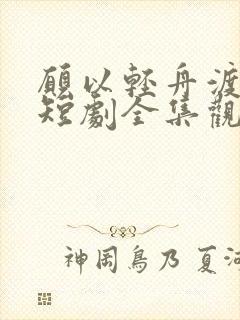 願以輕舟渡
短劇全集觀
神岡鳥乃 夏河